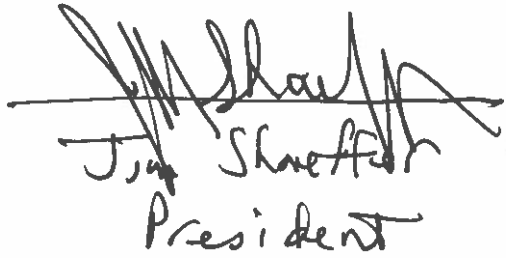 Jim Shaeffer
President